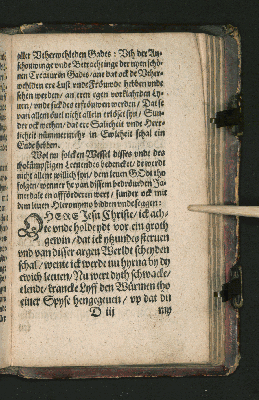 aller Vtherwehleden Gades: Vth der An-
schouwinge vnde Betrachtinge der nyen schö-
nen Creaturen Gades / ane dat ock de Vther-
wehlden ere Lust vnde Fröuwde hebben vnde
sehen werden / an erem egen vorklarden Ly-
uen / vnde sick des erfröuwen werden / Dat se
van allem öuel nicht allein erlöset syn / Sun-
der ock wethen / dat ere Salicheit vnde Herr-
licheit nümmermehr in Ewicheit schal ein
Ende hebben.
Wol nu solcken Wessel disses vnde des
thokümpstigen Leuendes bedencket / de werdt
nicht allene willich syn / dem leuen Gode tho
folgen / wenner he van dissem bedröueden Ja-
merdale en affförderen wert / sunder ock mit
dem leuen Hieronymo hübden vnde seggen:
OHERE Jesu Christe / ick ach-
te vnde holde ydt vor ein groth
gewin / dat ick yhundes steruen
vnd van disser argen Werldt scheyden
schal / wente ick werde nu hyrna by dy
ewich leeuen / Nu wert dyth swacke /
elende / krancke Lyff den Würmen tho
einer Spyse hengegeuen / vp dat du
D iij my